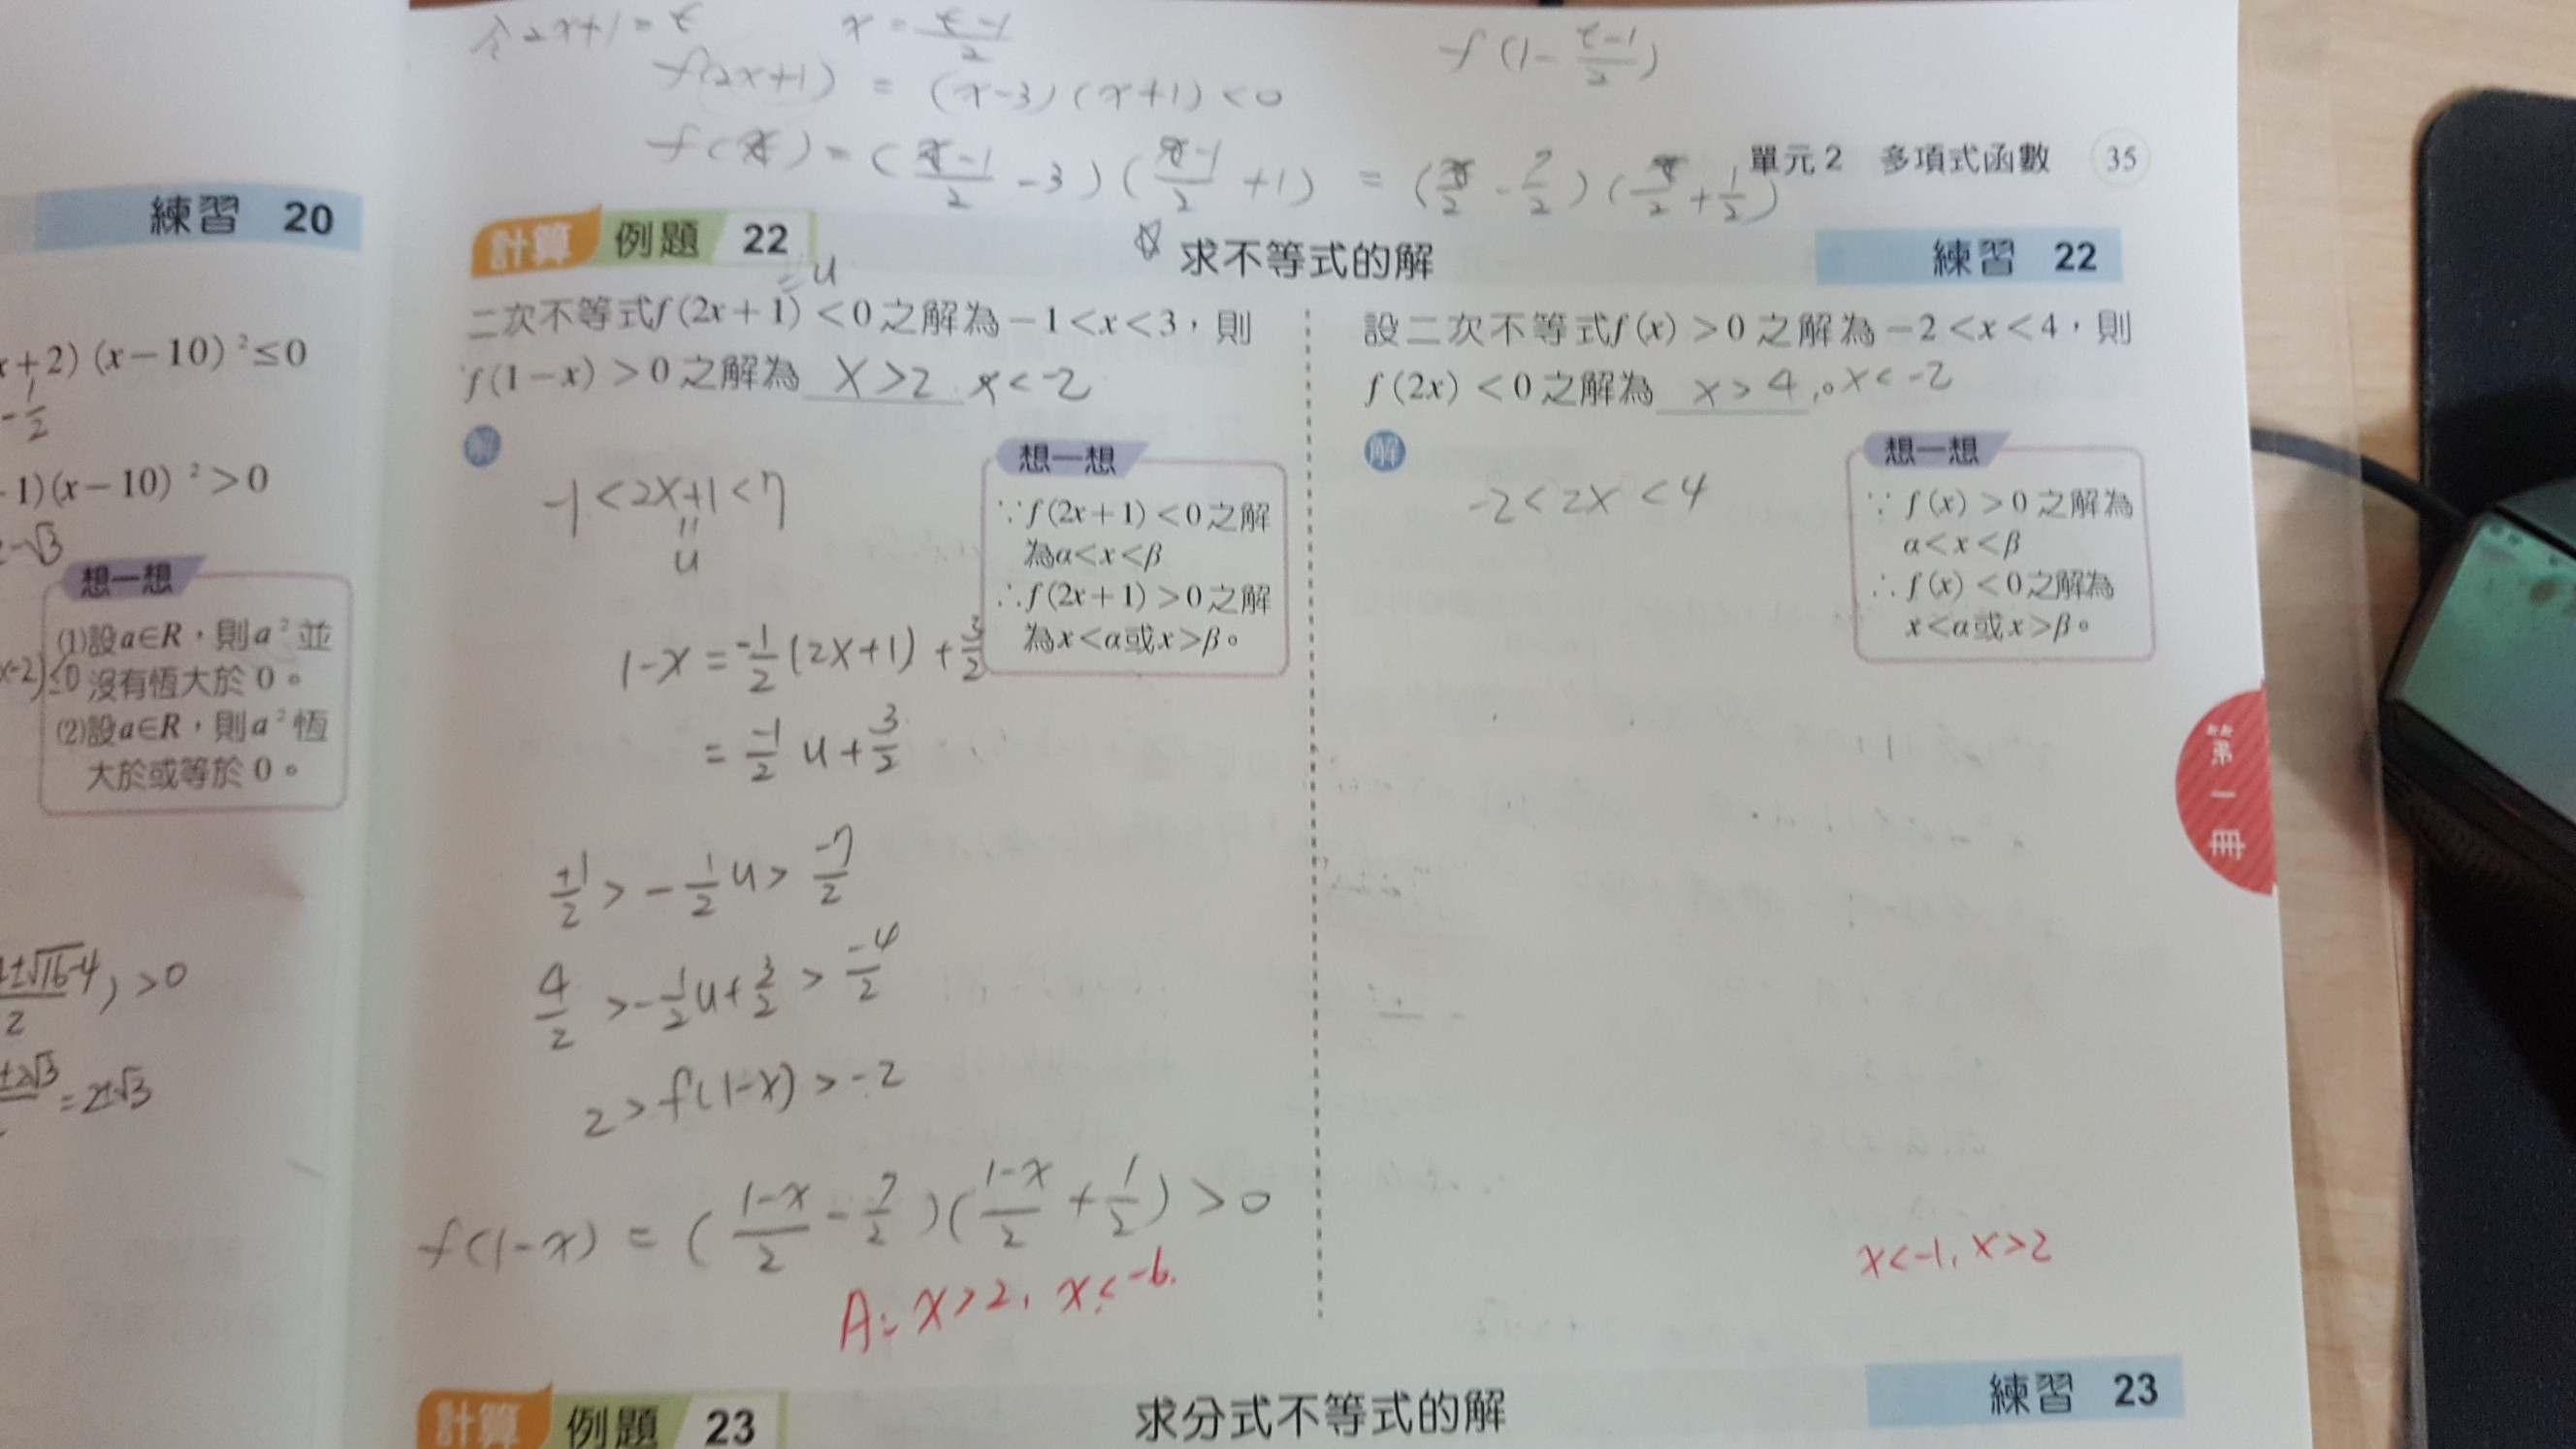 令2x+1=t x=\frac{t-1}{2}
f(2x+1) = (x-3)(x+1)<0
f(1-\frac{t-1}{2})
f(x)=(\frac{x-1}{2}-3)(\frac{x-1}{2}+1) = (\frac{x}{2}-\frac{7}{2})(\frac{x}{2}+\frac{1}{2})
單元2 多項式函數 35
練習 20
x+2)(x-10)²≤0
-\frac{1}{2}
-1)(x-10)²>0
2-√3
想一想
(1)設a∈R,則a²並
沒有恆大於0。
(2)設a∈R,則a²恆
大於或等於0。
x-2)≤0
4±√16-4
2
) >0
±2√3
=2±√3
計算 例題 22
求不等式的解
練習 22
=u
二次不等式f(2x+1)<0之解為-1<x<3,則
f(1-x)>0之解為 x>2 x<-2
解
-1<2x+1<7
=
u
想一想
∵f(2x+1)<0之解
為α<x<β
∴f(2x+1)>0之解
為x<α或x>β。
1-x=\frac{-1}{2}(2x+1)+\frac{3}{2}
=\frac{-1}{2}u+\frac{3}{2}
\frac{+1}{2}>-\frac{1}{2}u>\frac{-7}{2}
\frac{4}{2}>-\frac{1}{2}u+\frac{3}{2}>\frac{-4}{2}
2>f(1-x)>-2
f(1-x)=(\frac{1-x}{2}-\frac{7}{2})(\frac{1-x}{2}+\frac{1}{2})>0
A: x>2, x<-6.
設二次不等式f(x)>0之解為-2<x<4,則
f(2x)<0之解為 x>4 , 。x<-2
解
-2<2x<4
想一想
∵f(x)>0之解為
α<x<β
∴f(x)<0之解為
x<α或x>β。
x<-1, x>2
第一冊
計算 例題 23
求分式不等式的解
練習 23